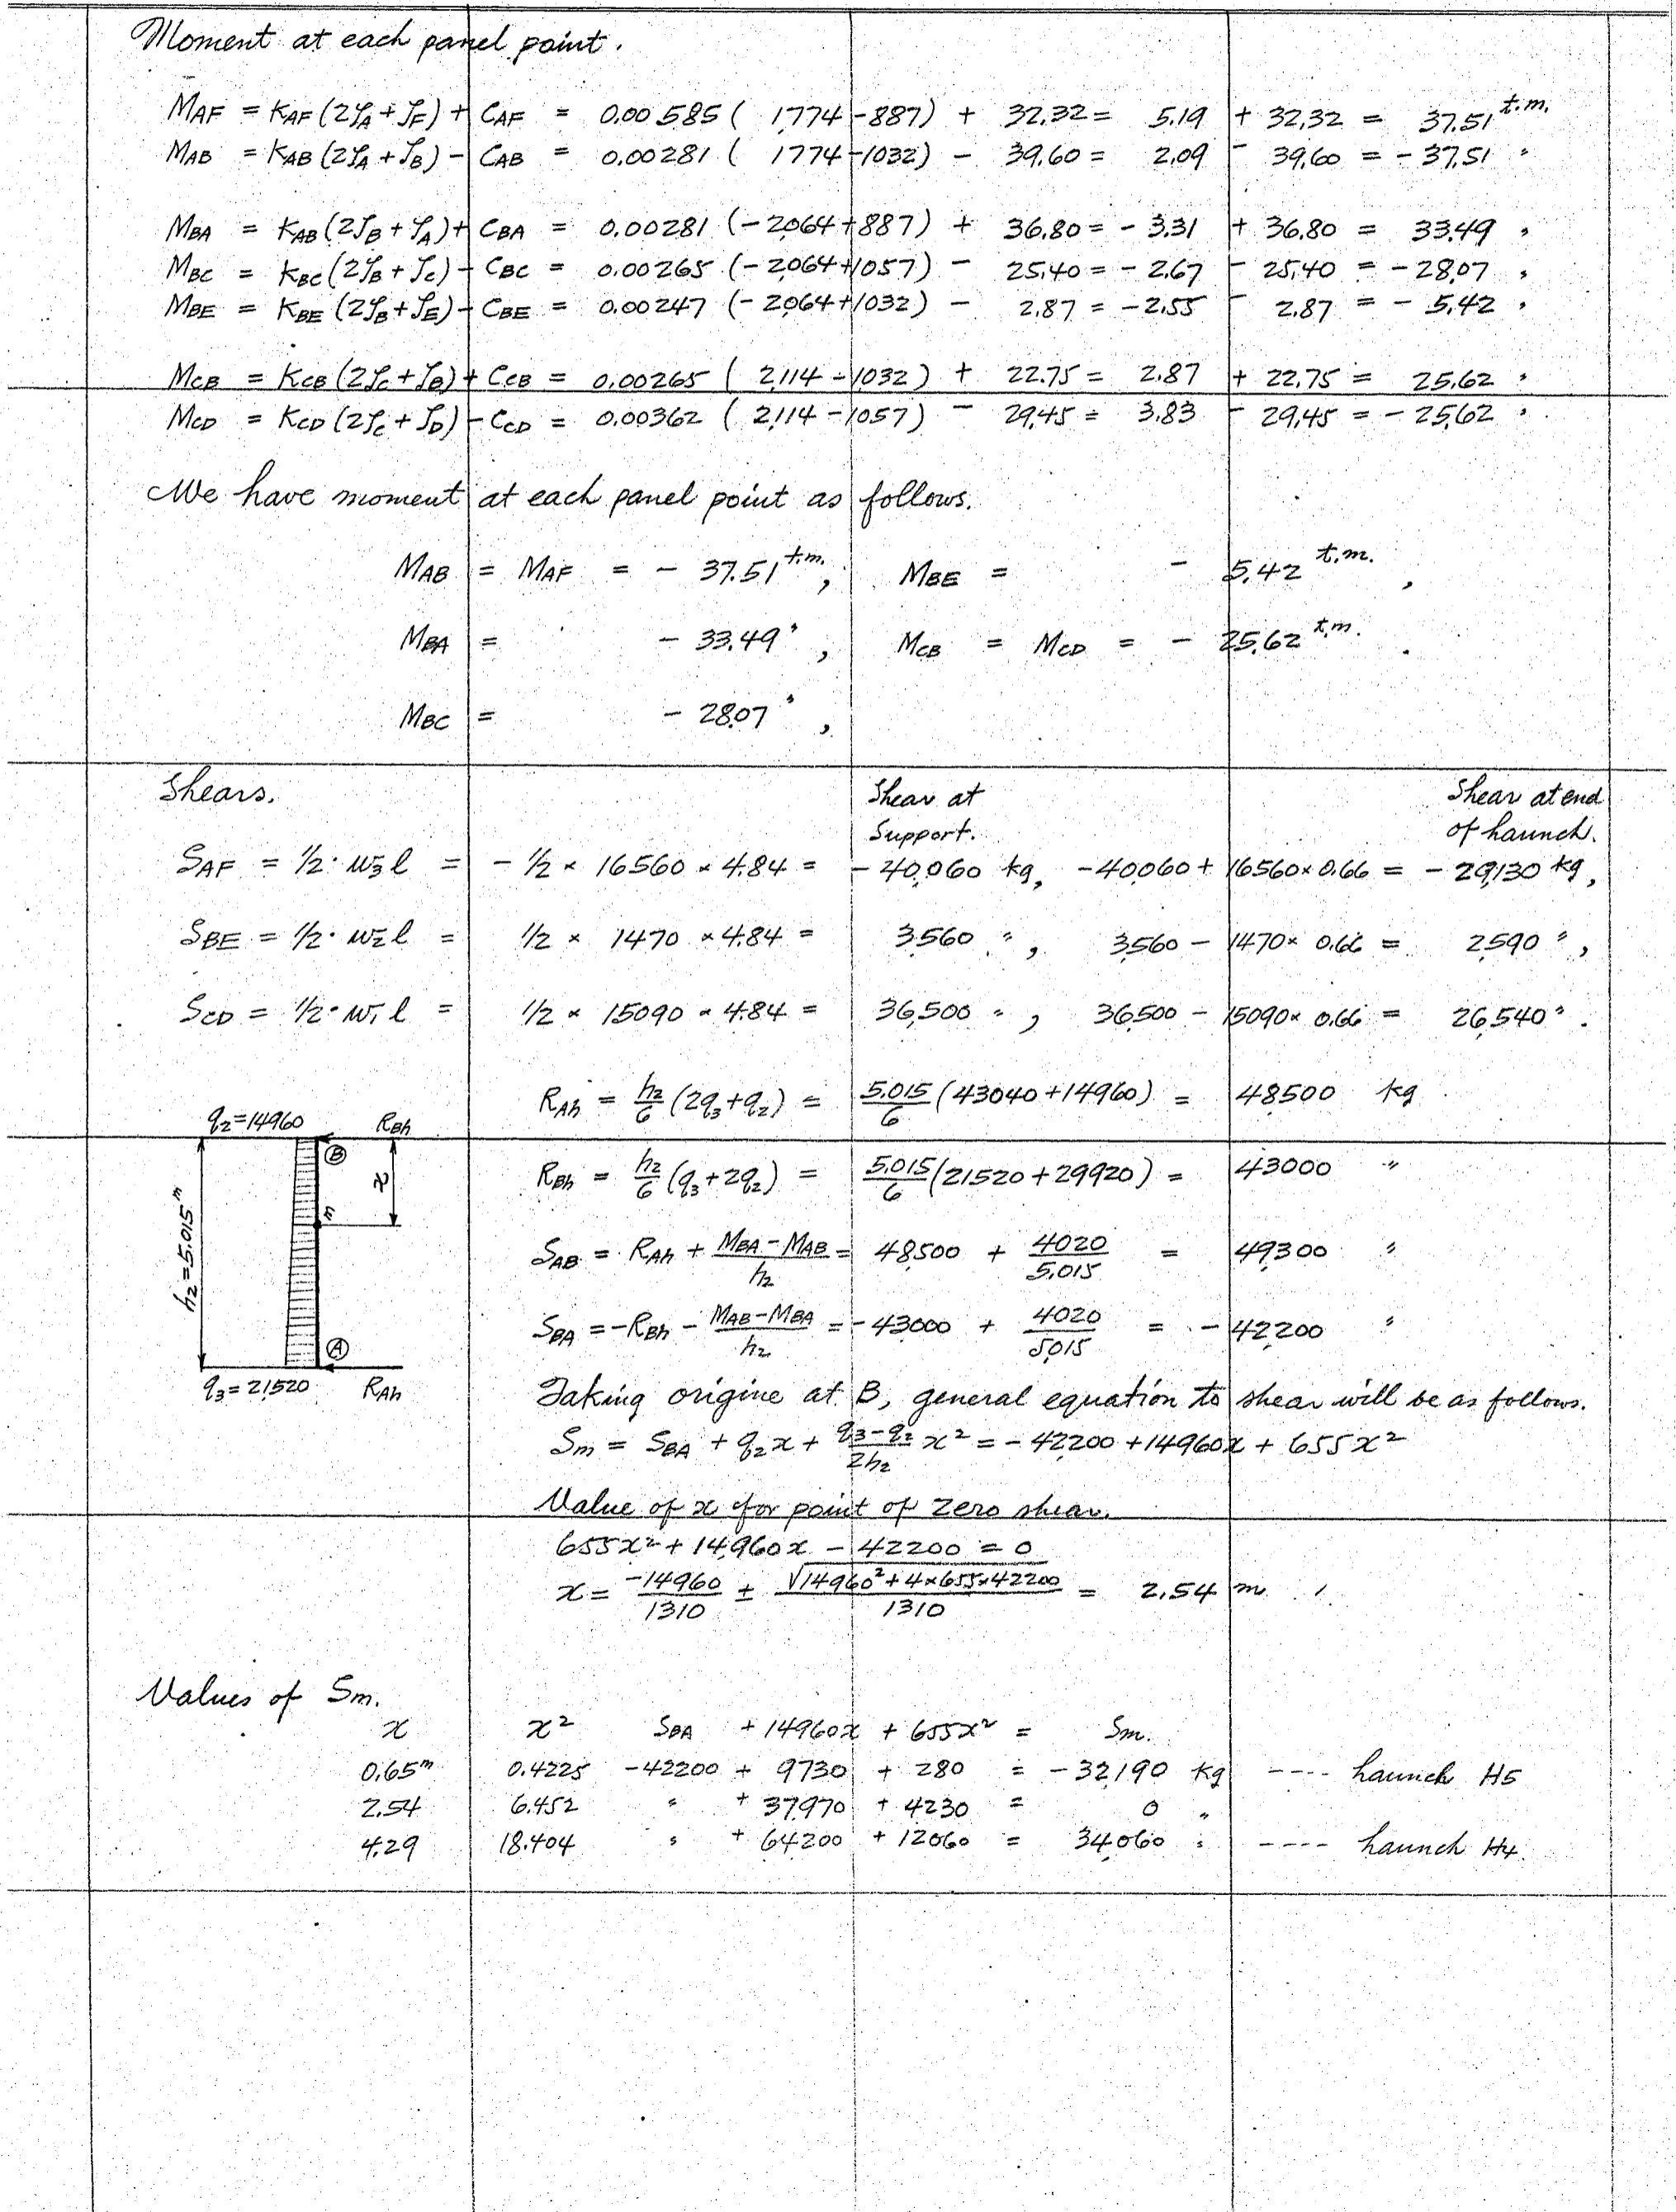 Moment at each panel point.
M_AF = K_AF (2φ_A + φ_F) + C_AF = 0.00585 ( 1,774 - 887) + 32.32 = 5.19 + 32.32 = 37.51 t.m.
M_AB = K_AB (2φ_A + φ_B) - C_AB = 0.00281 ( 1774 - 1032) - 39.60 = 2.09 - 39.60 = - 37.51 "
M_BA = K_AB (2φ_B + φ_A) + C_BA = 0.00281 (- 2,064 + 887) + 36.80 = - 3.31 + 36.80 = 33.49 "
M_BC = K_BC (2φ_B + φ_C) - C_BC = 0.00265 (- 2,064 + 1057) - 25.40 = - 2.67 - 25.40 = - 28.07 "
M_BE = K_BE (2φ_B + φ_E) - C_BE = 0.00247 (- 2,064 + 1032) - 2.87 = - 2.55 - 2.87 = - 5.42 "
M_CB = K_CB (2φ_C + φ_B) + C_CB = 0.00265 ( 2,114 - 1,032 ) + 22.75 = 2.87 + 22.75 = 25.62 "
M_CD = K_CD (2φ_C + φ_D) - C_CD = 0.00362 ( 2,114 - 1057) - 29.45 = 3.83 - 29.45 = - 25.62 "
We have moment at each panel point as follows.
M_AB = M_AF = - 37.51 t.m. , M_BE = - 5.42 t.m. ,
M_BA = - 33.49 " , M_CB = M_CD = - 25.62 t.m. .
M_BC = - 28.07 " ,
Shears.
Shear at Support.
Shear at end of haunch.
S_AF = 1/2 · w₃ l = - 1/2 × 16560 × 4.84 = - 40,060 kg, - 40,060 + 16560 × 0.66 = - 29,130 kg,
S_BE = 1/2 · w₂ l = 1/2 × 1470 × 4.84 = 3,560 " , 3,560 - 1470 × 0.66 = 2,590 " ,
S_CD = 1/2 · w₁ l = 1/2 × 15090 × 4.84 = 36,500 " , 36,500 - 15090 × 0.66 = 26,540 " .
R_Ah = h₂/6 (2q₃ + q₂) = 5.015/6 (43040 + 14960) = 48,500 kg
q₂ = 14960 R_Bh
B
x
m
h₂ = 5.015 m
A
q₃ = 21,520 R_Ah
R_Bh = h₂/6 (q₃ + 2q₂) = 5.015/6 (21520 + 29920) = 43000 "
S_AB = R_Ah + (M_BA - M_AB)/h₂ = 48,500 + 4020/5.015 = 49,300 "
S_BA = - R_Bh - (M_AB - M_BA)/h₂ = - 43,000 + 4020/5,015 = - 42,200 "
Taking origine at B, general equation to shear will be as follows.
S_m = S_BA + q₂x + (q₃ - q₂)/2h₂ x² = - 42,200 + 14960x + 655x²
Value of x for point of zero shear.
655x² + 14,960x - 42200 = 0
x = -14960/1310 ± √(14960² + 4×655×42200)/1310 = 2.54 m
Values of Sm.
x x² S_BA + 14960x + 655x² = Sm.
0.65 m 0.4225 -42200 + 9730 + 280 = - 32,190 kg ---- haunch H5
2.54 6.452 " + 37,970 + 4230 = 0 "
4.29 18.404 " + 64200 + 12060 = 34,060 " ---- haunch H4.